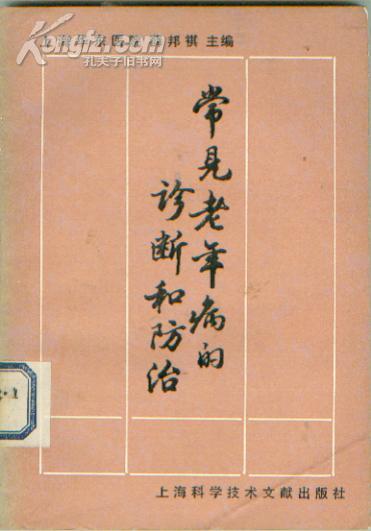 邦祺 主编
Kongfz.com
孔夫子旧书网
常见老年病的
诊断和防治
上海科学技术文献出版社